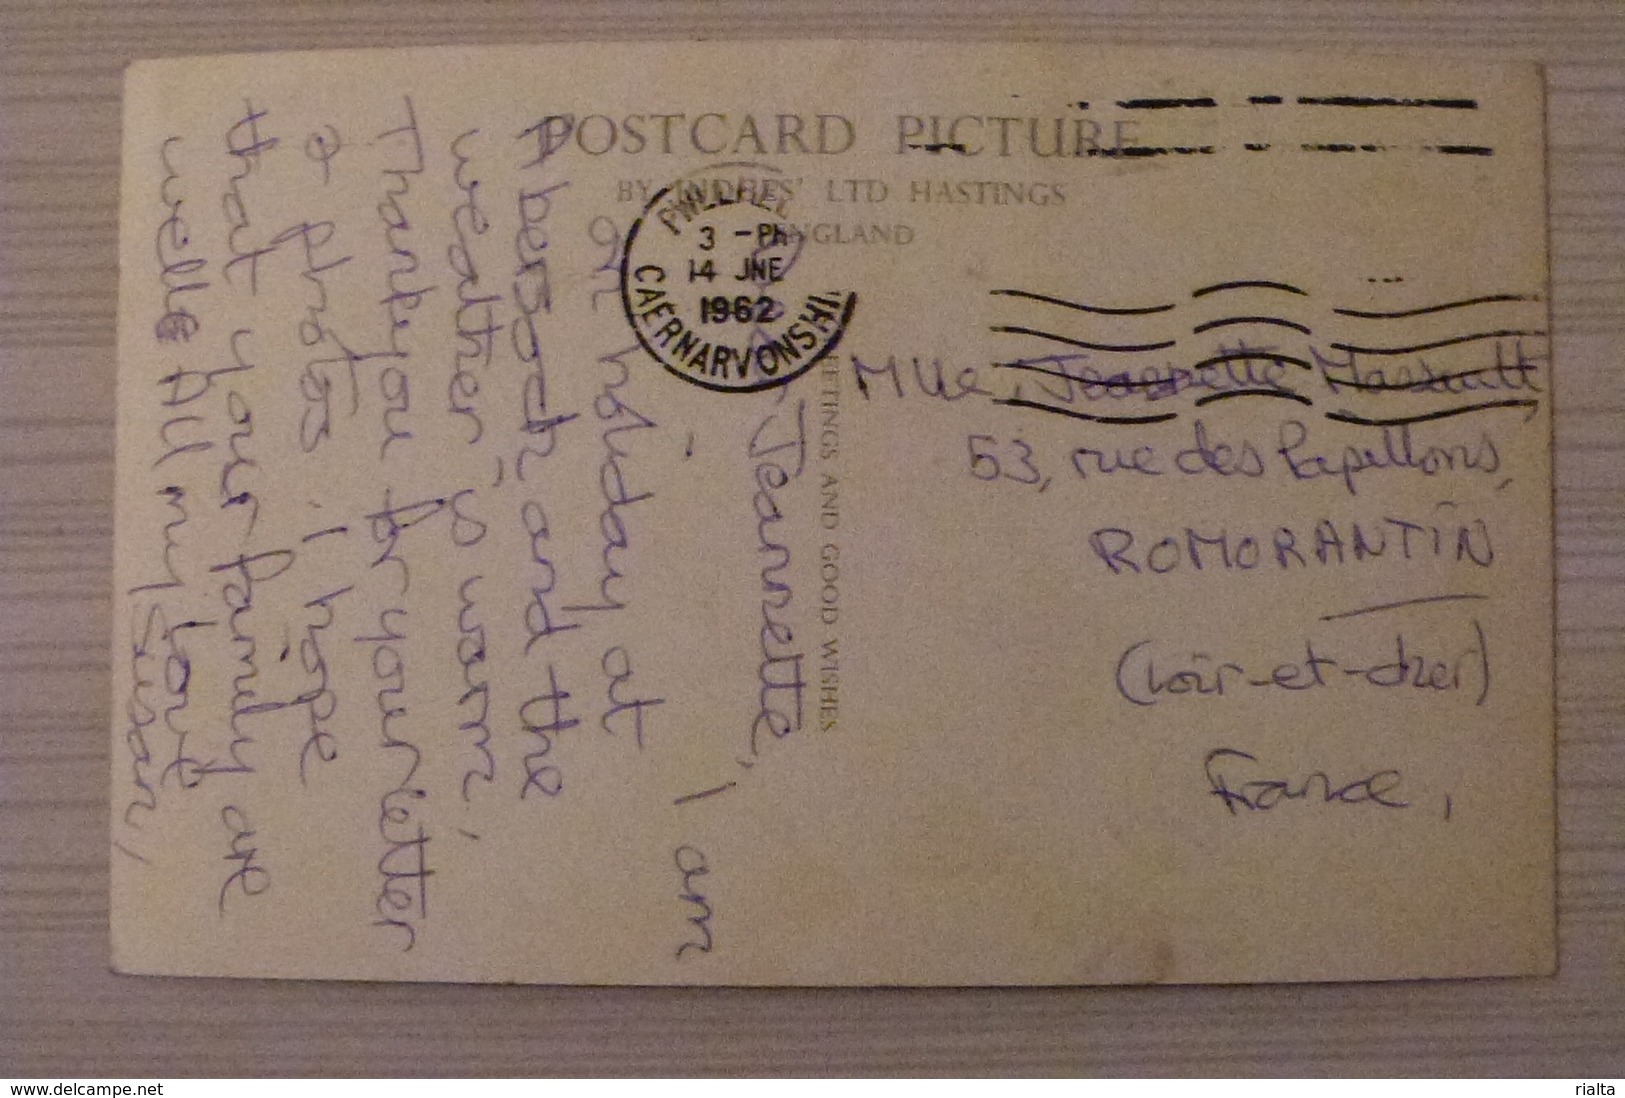 POSTCARD PICTURE
BY JUDGES' LTD HASTINGS
ENGLAND
PWLLHELI
3 - PM
14 JNE
1962
CAERNARVONSHI
GREETINGS AND GOOD WISHES
Jeannette,
I am
on holiday at
Abersoch and the
weather is warm,
Thankyou for your letter
& photos. I hope
that your family are
welle All my love
Susan,
Mlle, Jeannette
53, rue des Papillons,
ROMORANTIN
(Loir-et-cher)
France,
www.delcampe.net
rialta